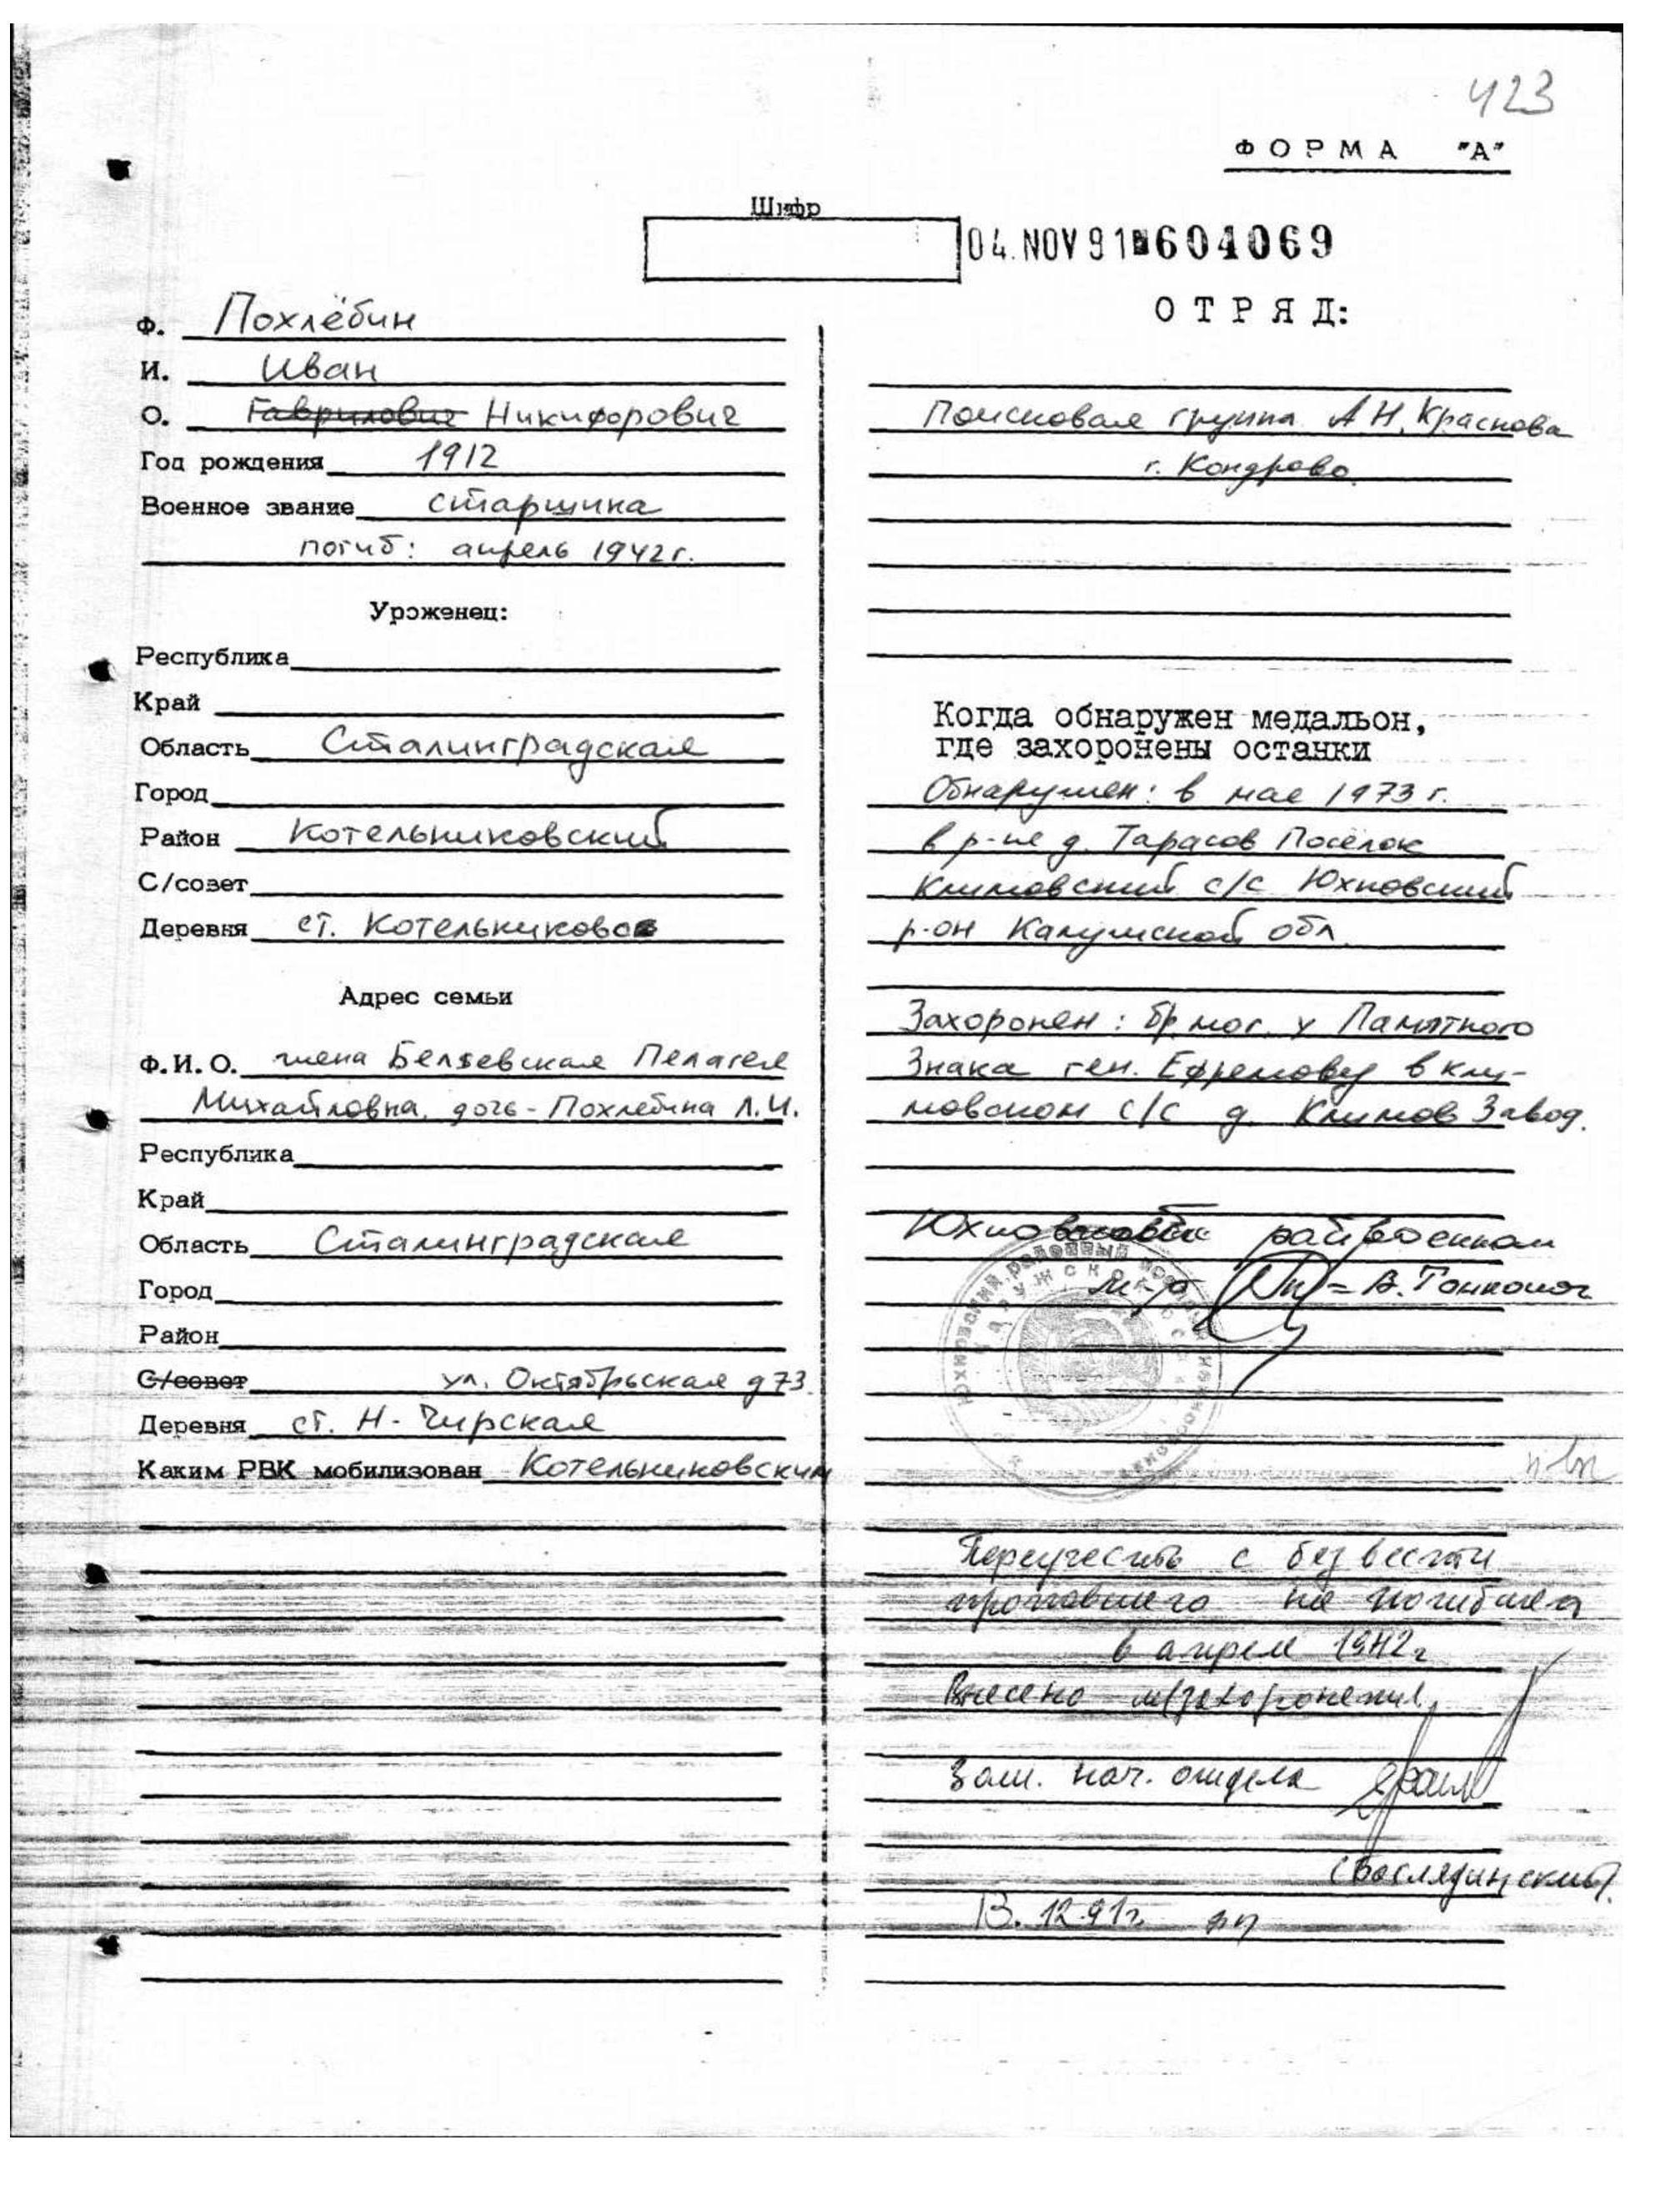 423
ФОРМА "А"
Шифр
04. NOV 91 604069
Ф. Похлёбин
И. Иван
О. Гаврилович Никифорович
Год рождения 1912
Военное звание старшина
погиб: апрель 1942 г.
Уроженец:
Республика
Край
Область Сталинградская
Город
Район Котельниковский
С/совет
Деревня ст. Котельниково
Адрес семьи
Ф.И.О. жена Беляевская Пелагея
Михайловна, дочь - Похлебина Л.И.
Республика
Край
Область Сталинградская
Город
Район
С/совет ул. Октябрьская д 73.
Деревня ст. Н-Чирская
Каким РВК мобилизован Котельниковским
ОТРЯД:
Поисковая группа А Н. Краснова
г. Кондрово.
Когда обнаружен медальон,
где захоронены останки
Обнаружен: в мае 1973 г.
в р-не д. Тарасов Посёлок
Климовский с/с Юхновский
р-он Калужской обл.
Захоронен: бр. мог. у Памятного
Знака ген. Ефремову в Кли-
мовском с/с д. Климов Завод.
райвоенком
м-р А. Тонконог
Переучесть с без вести
пропавшего на погибшего
в апреле 1942 г
Внесено м/захоронения.
Зам. нач. отдела
13. 12.91г.